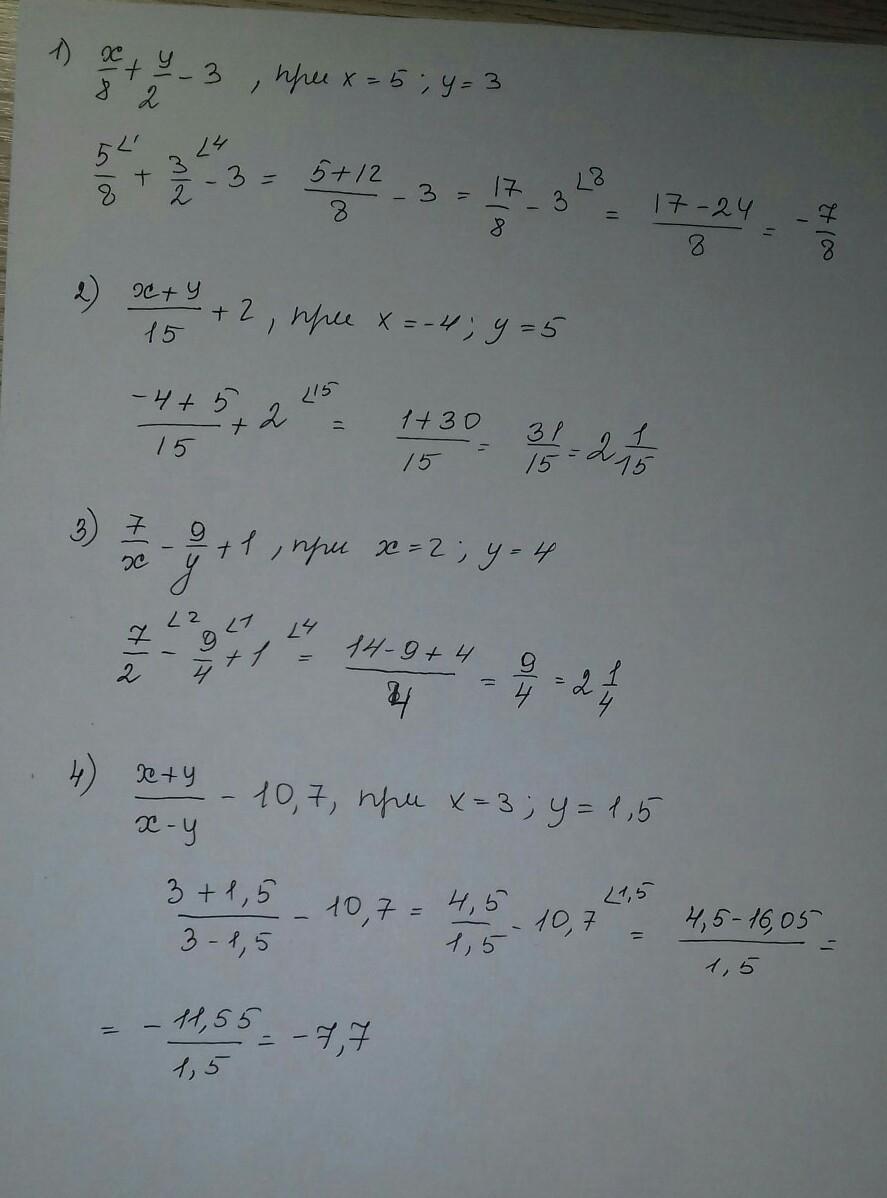 1) x/8 + y/2 - 3 , при x = 5 ; y = 3
5/8 ∠1 + 3/2 ∠4 - 3 = (5+12)/8 - 3 = 17/8 - 3 ∠8 = (17-24)/8 = -7/8
2) (x+y)/15 + 2 , при x = -4 ; y = 5
(-4+5)/15 + 2 ∠15 = (1+30)/15 = 31/15 = 2 1/15
3) 7/x - 9/y + 1 , при x = 2 ; y = 4
7/2 ∠2 - 9/4 ∠1 + 1 ∠4 = (14-9+4)/4 = 9/4 = 2 1/4
4) (x+y)/(x-y) - 10,7, при x = 3 ; y = 1,5
(3+1,5)/(3-1,5) - 10,7 = 4,5/1,5 - 10,7 ∠1,5 = (4,5-16,05)/1,5 =
= - 11,55/1,5 = -7,7